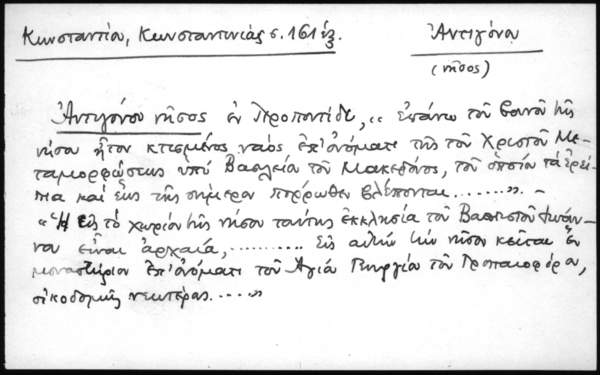 Κωνσταντίου, Κωνσταντινιάς σ. 161 ἑξ.
Ἀντιγόνη
(νῆσος)
Ἀντιγόνου νῆσος ἐν Προποντίδι, „ Ἐπάνω τοῦ βουνοῦ τῆς
νήσου ἦτον κτισμένος ναός ἐπ' ὀνόματι τῆς τοῦ Χριστοῦ Με-
ταμορφώσεως ὑπό Βασιλείου τοῦ Μακεδόνος, τοῦ ὁποίου τά ἐρεί-
πια καί ἕως τῆς σήμερον πόρρωθεν βλέπονται........". -
"Ἡ εἰς τό χωρίον τῆς νήσου ταύτης ἐκκλησία τοῦ Βαπτιστοῦ Ἰωάν-
νου εἶναι ἀρχαία, .......... Εἰς αὐτήν τήν νῆσον κεῖται ἕν
μοναστήριον ἐπ' ὀνόματι τοῦ Ἁγίου Γεωργίου τοῦ Τροπαιοφόρου,
οἰκοδομῆς νεωτέρας. ...."